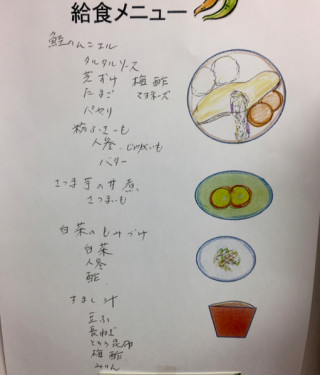 給食メニュー
鮭のムニエル
タルタルソース
梅酢
たまご マヨネーズ
パセリ
粉ふきいも
人参 じゃがいも
バター
さつま芋の甘煮
さつまいも
白菜のもみづけ
白菜
人参
酢
すまし汁
豆ふ
長ねぎ
とろろ昆布
梅酢
みりん